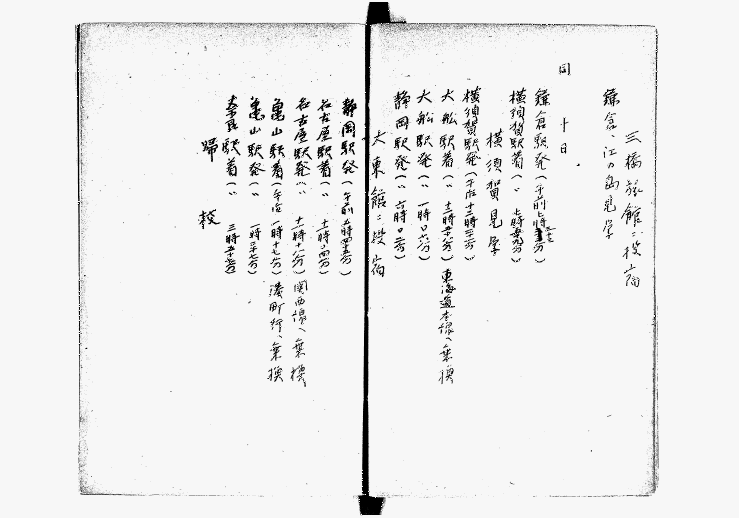 三橋旅館ニ投宿
鎌倉、江の島見学
同 十日
鎌倉駅発(午前七時 分)
横須賀駅着(〃 七時 分)
横須賀見学
横須賀駅発(午后十二時三分)
大船駅着(〃 十二時 分)東海道本線ヘ乗換
大船駅発(〃 一時〇六分)
静岡駅発(〃 六時〇二分)
大東館ニ投宿
静岡駅発(午前 時 分)
名古屋駅着(〃 十一時〇四分)
名古屋駅発(〃 十一時十八分)関西線ヘ乗換
亀山駅着(午后一時十七分)湊町行ヘ乗換
亀山駅発(〃 一時二十七分)
奈良駅着(〃 三時 分)
帰校